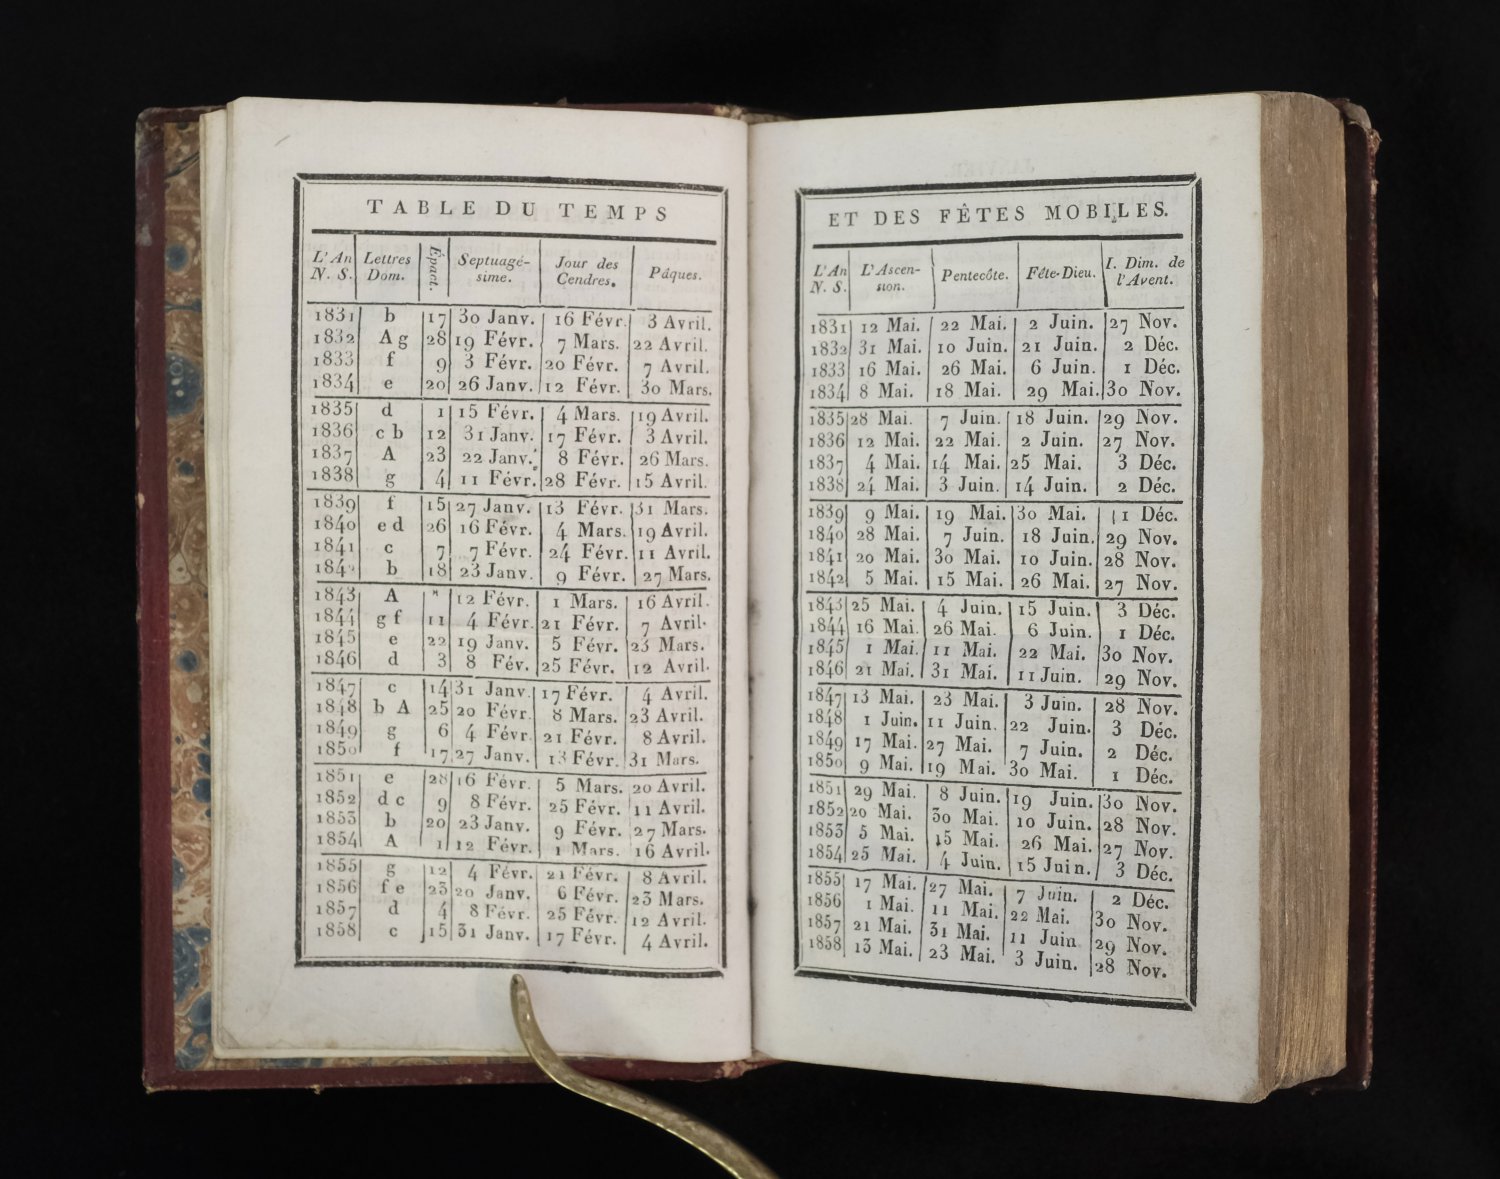 TABLE DU TEMPS
L'An N. S. Lettres Dom. Épact. Septuagé-sime. Jour des Cendres. Pâques.
1831 b 17 30 Janv. 16 Févr. 3 Avril.
1832 A g 28 19 Févr. 7 Mars. 22 Avril.
1833 f 9 3 Févr. 20 Févr. 7 Avril.
1834 e 20 26 Janv. 12 Févr. 30 Mars.
1835 d 1 15 Févr. 4 Mars. 19 Avril.
1836 c b 12 31 Janv. 17 Févr. 3 Avril.
1837 A 23 22 Janv. 8 Févr. 26 Mars.
1838 g 4 11 Févr. 28 Févr. 15 Avril.
1839 f 15 27 Janv. 13 Févr. 31 Mars.
1840 e d 26 16 Févr. 4 Mars. 19 Avril.
1841 c 7 7 Févr. 24 Févr. 11 Avril.
1842 b 18 23 Janv. 9 Févr. 27 Mars.
1843 A " 12 Févr. 1 Mars. 16 Avril.
1844 g f 11 4 Févr. 21 Févr. 7 Avril.
1845 e 22 19 Janv. 5 Févr. 23 Mars.
1846 d 3 8 Fév. 25 Févr. 12 Avril.
1847 c 14 31 Janv. 17 Févr. 4 Avril.
1848 b A 25 20 Févr. 8 Mars. 23 Avril.
1849 g 6 4 Févr. 21 Févr. 8 Avril.
1850 f 17 27 Janv. 13 Févr. 31 Mars.
1851 e 28 16 Févr. 5 Mars. 20 Avril.
1852 d c 9 8 Févr. 25 Févr. 11 Avril.
1853 b 20 23 Janv. 9 Févr. 27 Mars.
1854 A 1 12 Févr. 1 Mars. 16 Avril.
1855 g 12 4 Févr. 21 Févr. 8 Avril.
1856 f e 23 20 Janv. 6 Févr. 23 Mars.
1857 d 4 8 Févr. 25 Févr. 12 Avril.
1858 c 15 31 Janv. 17 Févr. 4 Avril.
ET DES FÊTES MOBILES.
L'An N. S. L'Ascen-sion. Pentecôte. Fête-Dieu. I. Dim. de l'Avent.
1831 12 Mai. 22 Mai. 2 Juin. 27 Nov.
1832 31 Mai. 10 Juin. 21 Juin. 2 Déc.
1833 16 Mai. 26 Mai. 6 Juin. 1 Déc.
1834 8 Mai. 18 Mai. 29 Mai. 30 Nov.
1835 28 Mai. 7 Juin. 18 Juin. 29 Nov.
1836 12 Mai. 22 Mai. 2 Juin. 27 Nov.
1837 4 Mai. 14 Mai. 25 Mai. 3 Déc.
1838 24 Mai. 3 Juin. 14 Juin. 2 Déc.
1839 9 Mai. 19 Mai. 30 Mai. 1 Déc.
1840 28 Mai. 7 Juin. 18 Juin. 29 Nov.
1841 20 Mai. 30 Mai. 10 Juin. 28 Nov.
1842 5 Mai. 15 Mai. 26 Mai. 27 Nov.
1843 25 Mai. 4 Juin. 15 Juin. 3 Déc.
1844 16 Mai. 26 Mai. 6 Juin. 1 Déc.
1845 1 Mai. 11 Mai. 22 Mai. 30 Nov.
1846 21 Mai. 31 Mai. 11 Juin. 29 Nov.
1847 13 Mai. 23 Mai. 3 Juin. 28 Nov.
1848 1 Juin. 11 Juin. 22 Juin. 3 Déc.
1849 17 Mai. 27 Mai. 7 Juin. 2 Déc.
1850 9 Mai. 19 Mai. 30 Mai. 1 Déc.
1851 29 Mai. 8 Juin. 19 Juin. 30 Nov.
1852 20 Mai. 30 Mai. 10 Juin. 28 Nov.
1853 5 Mai. 15 Mai. 26 Mai. 27 Nov.
1854 25 Mai. 4 Juin. 15 Juin. 3 Déc.
1855 17 Mai. 27 Mai. 7 Juin. 2 Déc.
1856 1 Mai. 11 Mai. 22 Mai. 30 Nov.
1857 21 Mai. 31 Mai. 11 Juin 29 Nov.
1858 13 Mai. 23 Mai. 3 Juin. 28 Nov.